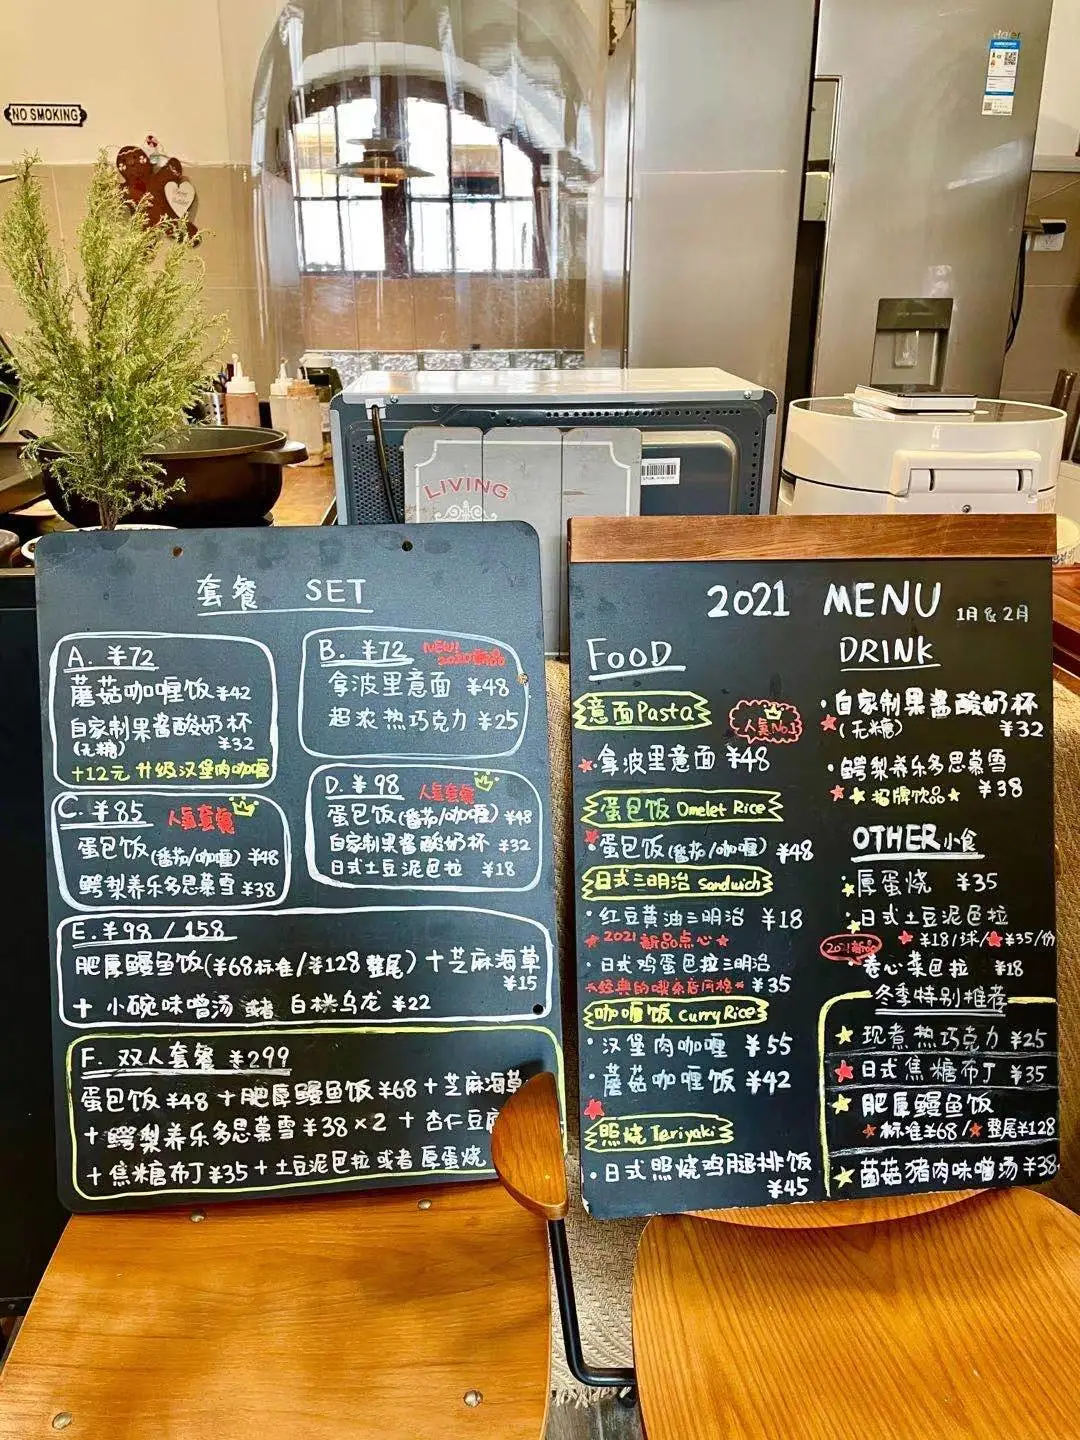 NO SMOKING
Haier
LIVING
套餐 SET
A. ¥72
蘑菇咖喱饭 ¥42
自家制果酱酸奶杯
(无糖) ¥32
+12元 升级汉堡肉咖喱
B. ¥72 NEW! 2020新品
拿波里意面 ¥48
超浓热巧克力 ¥25
C. ¥85 人気套餐
蛋包饭(番茄/咖喱) ¥48
鳄梨养乐多思慕雪 ¥38
D. ¥98 人気套餐
蛋包饭(番茄/咖喱) ¥48
自家制果酱酸奶杯 ¥32
日式土豆泥色拉 ¥18
E. ¥98 / 158
肥厚鳗鱼饭(¥68标准/¥128整尾) + 芝麻海草
¥15
+ 小碗味噌汤 或者 白桃乌龙 ¥22
F. 双人套餐 ¥299
蛋包饭 ¥48 + 肥厚鳗鱼饭 ¥68 + 芝麻海草
+ 鳄梨养乐多思慕雪 ¥38×2 + 杏仁豆腐
+ 焦糖布丁 ¥35 + 土豆泥色拉 或者 厚蛋烧
2021 MENU 1月&2月
FOOD
意面Pasta
人気No.1
拿波里意面 ¥48
蛋包饭 Omelet Rice
蛋包饭(番茄/咖喱) ¥48
日式三明治 Sandwich
红豆黄油三明治 ¥18
2021新品点心
日式鸡蛋色拉三明治
经典的喫茶店风格 ¥35
咖喱饭 Curry Rice
汉堡肉咖喱 ¥55
蘑菇咖喱饭 ¥42
照烧 Teriyaki
日式照烧鸡腿排饭
¥45
DRINK
自家制果酱酸奶杯
(无糖) ¥32
鳄梨养乐多思慕雪
招牌饮品 ¥38
OTHER小食
厚蛋烧 ¥35
日式土豆泥色拉
¥18/球/¥35/份
2021新品
卷心菜色拉 ¥18
冬季特别推荐
现煮热巧克力 ¥25
日式焦糖布丁 ¥35
肥厚鳗鱼饭
标准¥68/整尾¥128
菌菇猪肉味噌汤 ¥38